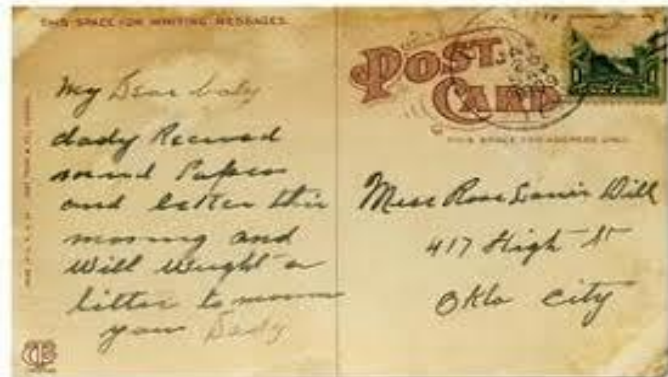 THIS SPACE FOR WRITING MESSAGES.
My Dear baby
dady Recived
and Papers
and letter this
morning and
Will Wright a
letter to
your Dady
POST
CARD
THIS SPACE FOR ADDRESS ONLY.
Miss Rose Dill
417 High St
Okla City